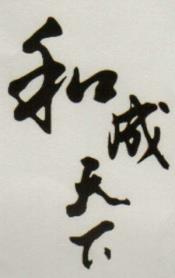 和成天下